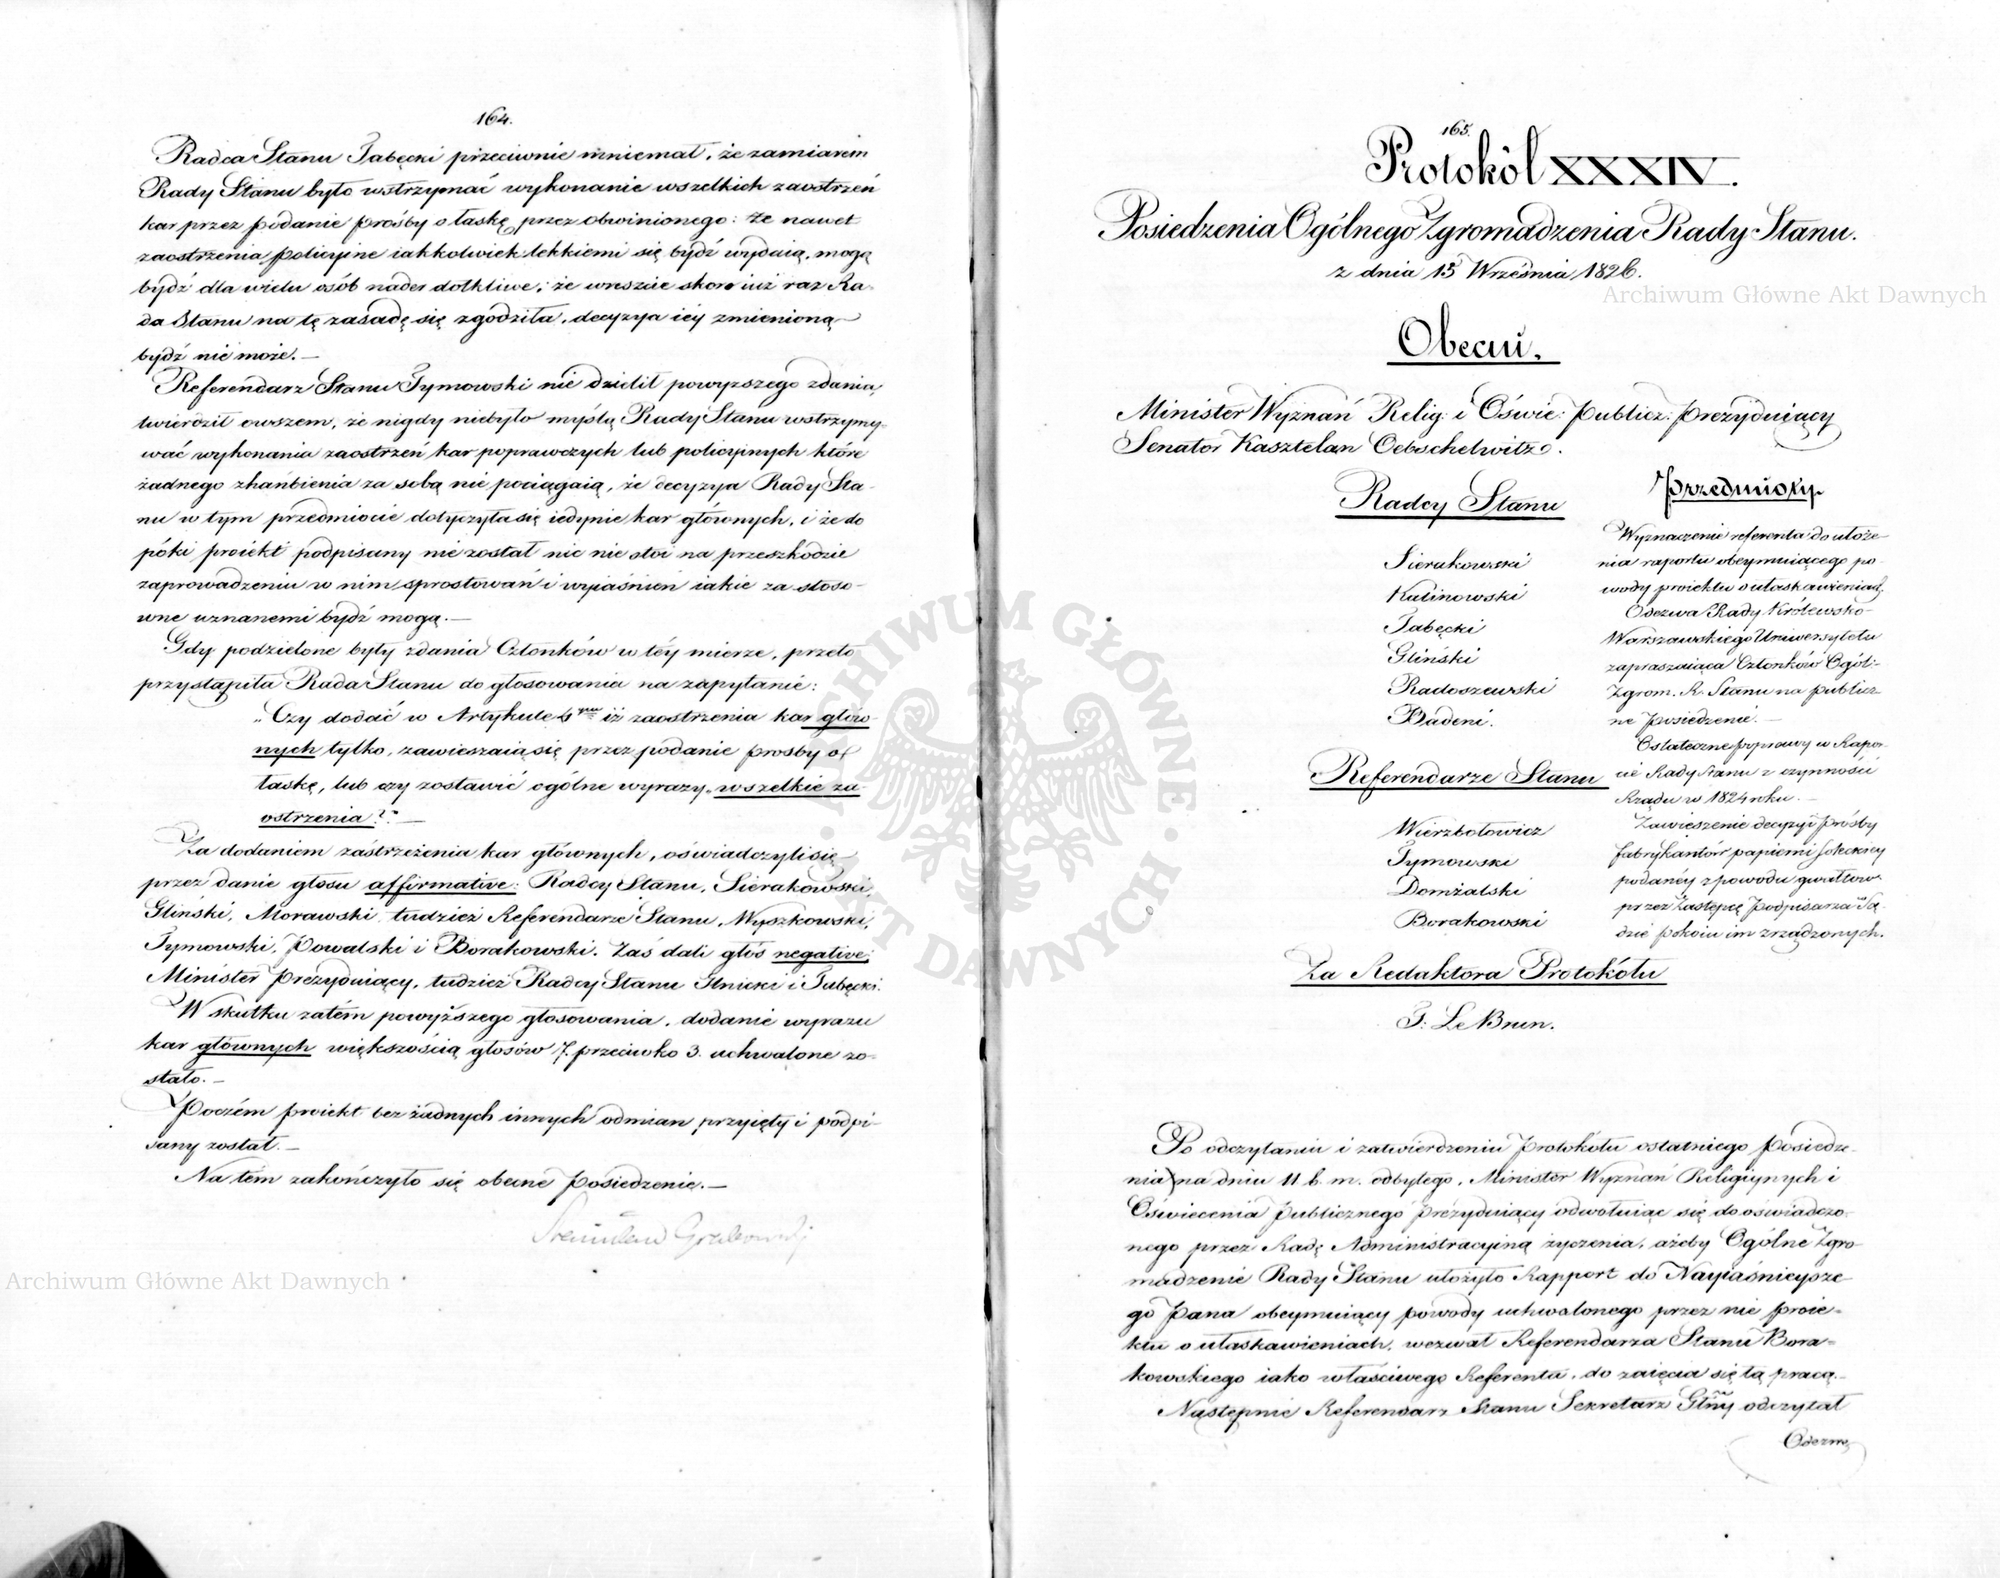 164.
Radca Stanu Tabęcki przeciwnie mniemał, że zamiarem
Rady Stanu było wstrzymać wykonanie wszelkich zaostrzeń
kar przez podanie prośby o łaskę przez obwinionego: że nawet
zaostrzenia policyine iakkolwiek lekkiemi się bydź wydaią, mogą
bydź dla wielu osób nader dotkliwe; że wreszcie skoro iuż raz Ra-
da Stanu na tę zasadę się zgodziła, decyzya iéy zmienioną
bydź nie może. —
Referendarz Stanu Tymowski nie dzielił powyższego zdania,
twierdził owszem, że nigdy niebyło myślą Rady Stanu wstrzymy-
wać wykonania zaostrzeń kar poprawczych lub policyinych które
żadnego zhańbienia za sobą nie pociągaią, że decyzya Rady Sta-
nu w tym przedmiocie dotyczyła się iedynie kar głównych, i że do
póki proiekt podpisany nie został nic nie stoi na przeszkodzie
zaprowadzeniu w nim sprostowań i wyiaśnień iakie za stoso-
wne uznanemi bydź mogą. —
Gdy podzielone były zdania Członków w téy mierze, przeto
przystąpiła Rada Stanu do głosowania na zapytanie:
„Czy dodać w Artykule iż zaostrzenia kar głów-
nych tylko, zawieszaią się przez podanie prosby o
łaskę, lub czy zostawić ogólne wyrazy „wszelkie za-
ostrzenia"? —
Za dodaniem zastrzeżenia kar głównych, oświadczyli się
przez danie głosu affirmative: Radcy Stanu, Sierakowski,
Gliński, Morawski, tudzież Referendarze Stanu, Wyszkowski,
Tymowski, Powalski i Borakowski. Zaś dali głos negative:
Minister Prezyduiący, tudzież Radcy Stanu Ilnicki i Tabęcki.
W skutku zatém powyższego głosowania, dodanie wyrazu
kar głównych większością głosów 7. przeciwko 3. uchwalone zo-
stało. —
Poczém proiekt bez żadnych innych odmian przyięty i podpi-
sany został. —
Na tém zakończyło się obecne Posiedzenie. —
Stanisław Grabowski
165.
Protokół XXXIV.
Posiedzenia Ogólnego Zgromadzenia Rady Stanu.
z dnia 15 Września 1826.
Obecni.
Minister Wyznań Relig: i Oświe: Publicz: Prezyduiący
Senator Kasztelan Oebschelwitz.
Radcy Stanu
Sierakowski
Kalinowski
Tabęcki
Gliński
Radoszewski
Badeni.
Referendarze Stanu
Wierzbołowicz
Tymowski
Domżalski
Borakowski
Za Redaktora Protokółu
F: Le Brun.
Przedmioty.
Wyznaczenie referenta do ułoże-
nia raportu obeymuiącego po-
wody proiektu o ułaskawieniach.
Odezwa Rady Królewsko-
Warszawskiego Uniwersytetu
zapraszaiąca Członków Ogól:
Zgrom. R. Stanu na publicz-
ne Posiedzenie. —
Ostateczne poprawy w Rapor-
cie Rady Stanu z czynności
Rządu w 1824 roku. —
Zawieszenie decyzyi prośby
fabrykantów papierni Soleckiey
podanéy z powodu gwałtów
przez Zastępcę Podpisarza Są-
dzie pokoiu im zrządzonych.
Po odczytaniu i zatwierdzeniu Protokółu ostatniego Posiedze-
nia na dniu 11 b. m. odbytego, Minister Wyznań Religiynych i
Oświecenia Publicznego Prezyduiący odwołuiąc się do oświadczo-
nego przez Radę Administracyiną życzenia, ażeby Ogólne Zgro-
madzenie Rady Stanu ułożyło Rapport do Nayiaśnieysze-
go Pana obeymuiący powody uchwalonego przez nie proie-
ktu o ułaskawieniach, wezwał Referendarza Stanu Bora-
kowskiego iako właściwego Referenta, do zaięcia się tą pracą. —
Następnie Referendarz Stanu Sekretarz Glny odczytał
Odezwę
Archiwum Główne Akt Dawnych
Archiwum Główne Akt Dawnych
ARCHIWUM GŁÓWNE AKT DAWNYCH